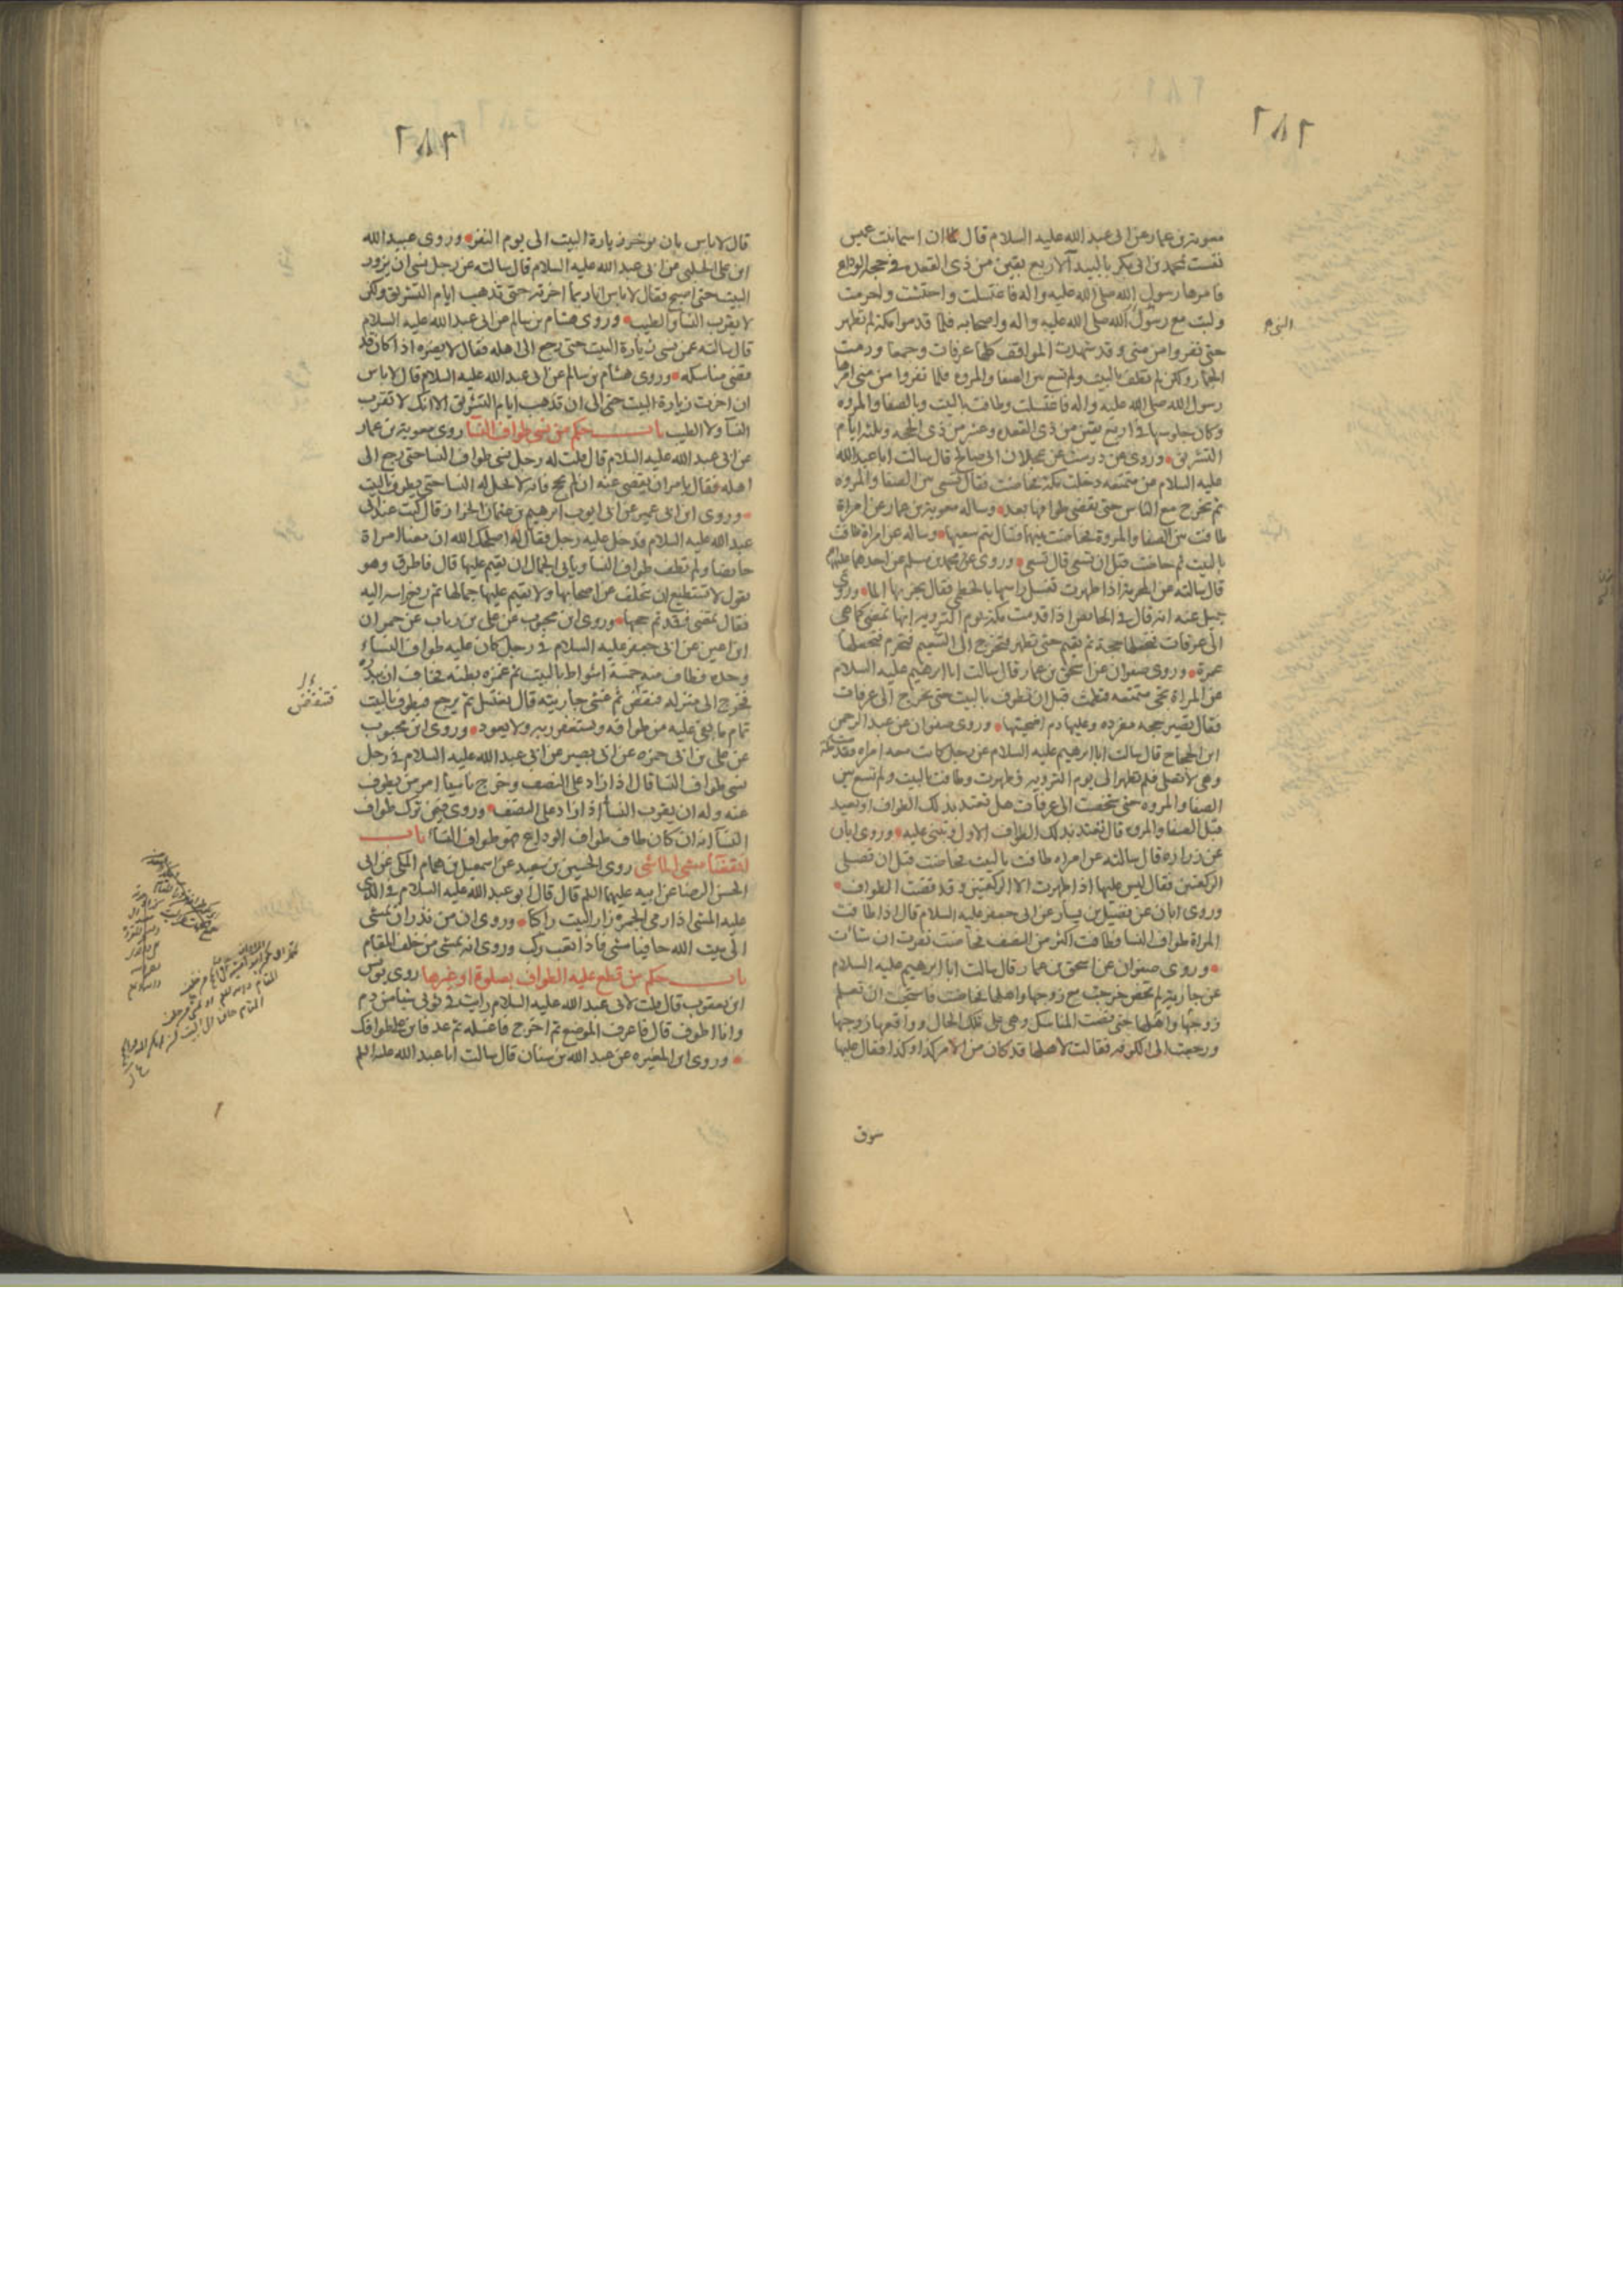 ٢٨٢
معوية بن عمار عن ابي عبد الله عليه السلام قال ان اسماء بنت عميس
نفست بمحمد بن ابي بكر بالبيداء لاربع بقين من ذي القعدة في حجة الوداع
فامرها رسول الله صلى الله عليه واله فاغتسلت واحتشت واحرمت
ولبت مع رسول الله صلى الله عليه واله واصحابه فلما قدموا مكة لم تطهر
حتى نفروا من منى وقد شهدت المواقف كلها عرفات وجمعا ورمت
الجمار ولكن لم تطف بالبيت ولم تسع بين الصفا والمروة فلما نفروا من منى امرها
رسول الله صلى الله عليه واله فاغتسلت وطافت بالبيت وبالصفا والمروه
وكان جلوسها في اربع بقين من ذي القعده وعشر من ذي الحجه وثلثة ايام
التشريق وروي عن درست عن عجلان ابي صالح قال سالت ابا عبد الله
عليه السلام عن متمتعه دخلت مكة فحاضت فقال تسعى بين الصفا والمروه
ثم تخرج مع الناس حتى تقضي طوافها بعد وساله معوية بن عمار عن امراة
طافت بين الصفا والمروة فحاضت بينهما فقال تتم سعيها وساله عن امراة طافت
بالبيت ثم حاضت قبل ان تسعى قال تسعى وروي عن محمد بن مسلم عن احدهما عليهما
قال سالته عن المحرمة اذا طهرت تغسل راسها بالخطمي فقال يجزيها الماء وروى
جميل عنه انه قال في الحائض اذا قدمت مكة يوم التروية انها تمضي كما هي
الى عرفات فتجعلها حجة ثم تقيم حتى تطهر فتخرج الى التنعيم فتحرم فتجعلها
عمرة وروى صفوان عن اسحق بن عمار قال سالت ابا ابرهيم عليه السلام
عن المراة تجئ متمتعه فتطمث قبل ان تطوف بالبيت حتى تخرج الى عرفات
فقال تصير حجه مفرده وعليها دم اضحيتها وروى صفوان عن عبد الرحمن
ابن الحجاج قال سالت ابا ابرهيم عليه السلام عن رجل كانت معه امراه فقدمت مكة
وهي لا تصلي فلم تطهر الى يوم التروية فطهرت وطافت بالبيت ولم تسع بين
الصفا والمروه حتى شخصت الى عرفات هل تعتد بذلك الطواف او تعيد
قبل الصفا والمروه قال تعتد بذلك الطواف الاول وتبني عليه وروى ابان
عن زراره قال سالته عن امراه طافت بالبيت فحاضت قبل ان تصلي
الركعتين فقال ليس عليها اذا طهرت الا الركعتين وقد قضت الطواف
وروى ابان عن فضيل بن يسار عن ابي جعفر عليه السلام قال اذا طافت
المراة طواف النسا وطافت اكثر من النصف فحاضت نفرت ان شاءت
وروى صفوان عن اسحق بن عمار قال سالت ابا ابرهيم عليه السلام
عن جارية لم تحض خرجت مع زوجها واهلها فحاضت فاستحيت ان تعلم
زوجها واهلها حتى قضت المناسك وهي على تلك الحال وواقعها زوجها
ورجعت الى الكوفه فقالت لاهلها قد كان من الامر كذا وكذا فقال عليها
سوق
٢٨٣
قال لا باس بان يوخر زيارة البيت الى يوم النفر وروى عبيد الله
ابن علي الحلبي عن ابي عبد الله عليه السلام قال سالته عن رجل نسي ان يزور
البيت حتى اصبح فقال لا باس انا ربما اخرته حتى تذهب ايام التشريق ولكن
لا يقرب النسا والطيب وروى هشام بن سالم عن ابي عبد الله عليه السلام
قال سالته عمن نسي زيارة البيت حتى رجع الى اهله فقال لا يضره اذا كان قد
قضى مناسكه وروى هشام بن سالم عن ابي عبد الله عليه السلام قال لا باس
ان اخرت زيارة البيت الى ان تذهب ايام التشريق الا انك لا تقرب
النساء ولا الطيب باب حكم من نسي طواف النسا روى معوية بن عمار
عن ابي عبد الله عليه السلام قال قلت له رجل نسي طواف النسا حتى رجع الى
اهله فقال يامر ان يقضى عنه ان لم يحج فانه لا تحل له النسا حتى يطوف بالبيت
وروى ابن ابي عمير عن ابي ايوب ابرهيم بن عثمان الخزاز قال كنت عند ابي
عبد الله عليه السلام فدخل عليه رجل فقال له اصلحك الله ان معنا امراة
حايضا ولم تطف طواف النسا ويابى الجمال ان يقيم عليها قال فاطرق وهو
يقول لا تستطيع ان تتخلف عن اصحابها ولا يقيم عليها جمالها ثم رفع راسه اليه
فقال تمضي فقد تم حجها وروى ابن محبوب عن علي بن رياب عن حمران
ابن اعين عن ابي جعفر عليه السلام في رجل كان عليه طواف النساء
وحده فطاف منه خمسة اشواط بالبيت ثم غمزه بطنه فخاف ان يبدره
فخرج الى منزله فنقض ثم غشي جاريته قال يغتسل ثم يرجع فيطوف بالبيت
تمام ما بقي عليه من طوافه ويستغفر ربه ولا يعود وروى ابن محبوب
عن علي بن ابي حمزه عن ابي بصير عن ابي عبد الله عليه السلام في رجل
نسي طواف النسا قال اذا زاد على النصف وخرج ناسيا امر من يطوف
عنه وله ان يقرب النسا اذا زاد على النصف وروي فيمن ترك طواف
النساء انه ان كان طاف طواف الوداع فهو طواف النساء باب
انقضاء مشي الماشي روى الحسين بن سعيد عن اسمعيل بن همام المكي عن ابي
الحسن الرضا عن ابيه عليهما السلم قال قال ابو عبد الله عليه السلام في الذي
عليه المشي اذا رمى الجمره زار البيت راكبا وروي ان من نذر ان يمشي
الى بيت الله حافيا مشى فاذا تعب ركب وروي انه يمشي من خلف المقام
باب حكم من قطع عليه الطواف بصلوة او غيرها روى يونس
ابن يعقوب قال قلت لابي عبد الله عليه السلام رايت في ثوبي شيئا من دم
وانا اطوف قال فاعرف الموضع ثم اخرج فاغسله ثم عد فابن على طوافك
وروى ابن المغيره عن عبد الله بن سنان قال سالت ابا عبد الله عليه السلم